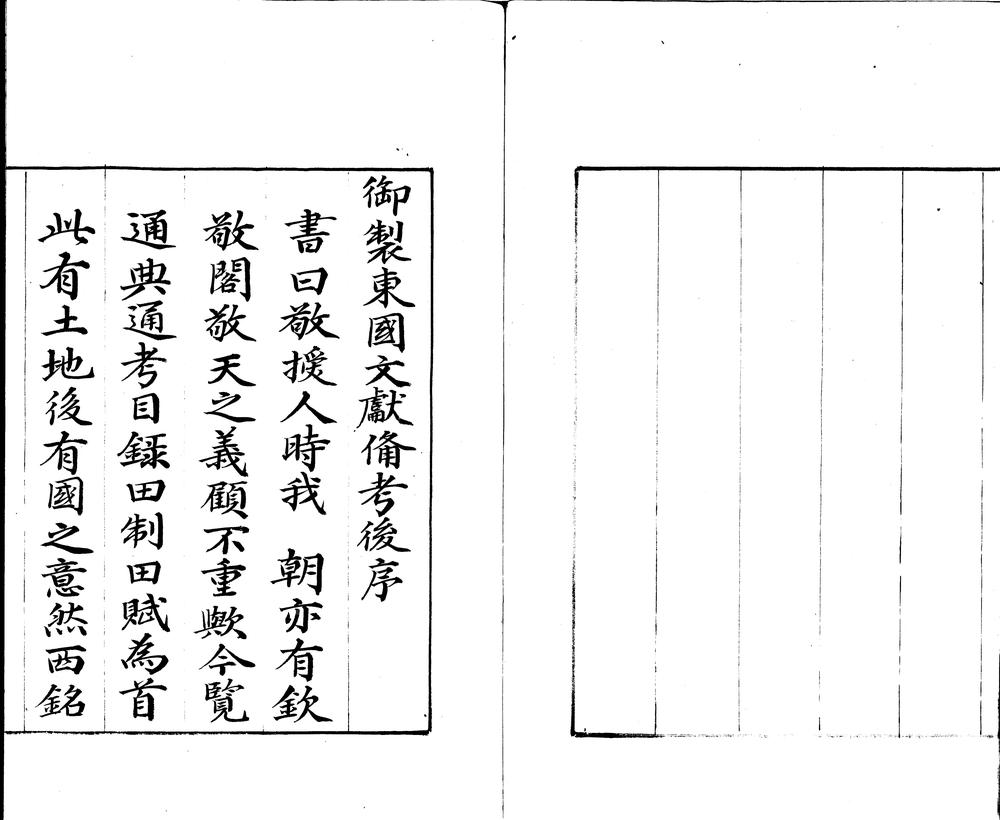 御製東國文獻備考後序
書曰敬授人時我　朝亦有欽
敬閣敬天之義顧不重歟今覽
通典通考目錄田制田賦為首
此有土地後有國之意然西銘